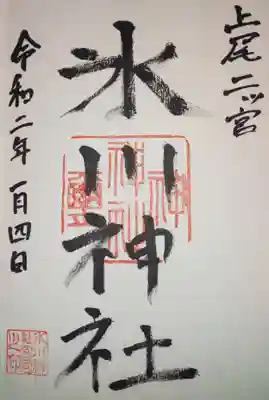 上尾二ツ宮
氷川神社
令和二年一月四日